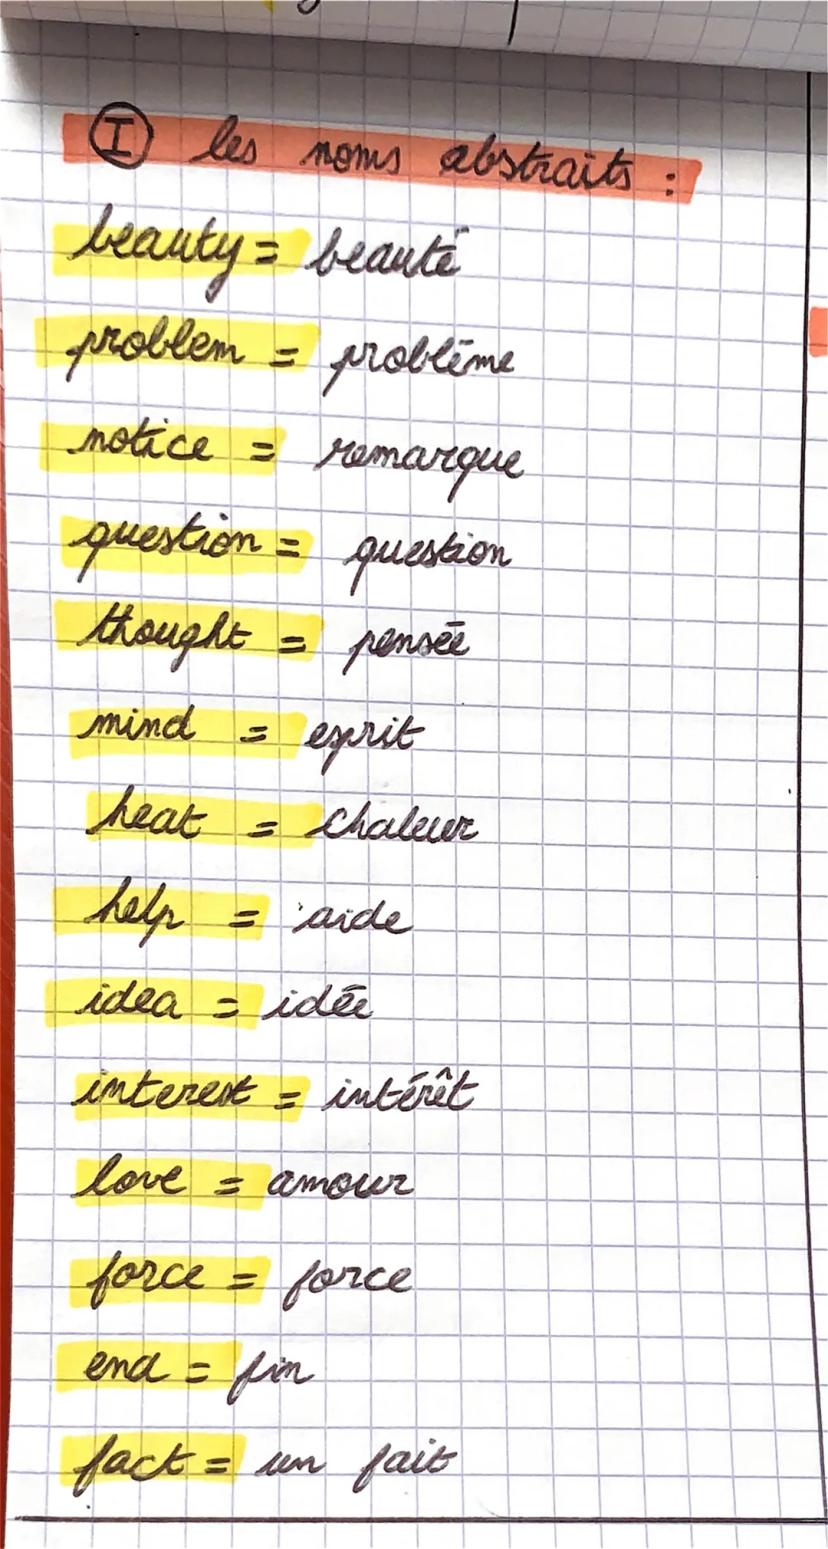 I les noms abstraits :
beauty = beauté
problem = problême
notice = remarque
question = question
thought = pensée
mind = esprit
heat = chaleur
help = aide
idea = idée
interest = intérêt
love = amour
force = force
end = fin
fact = un fait